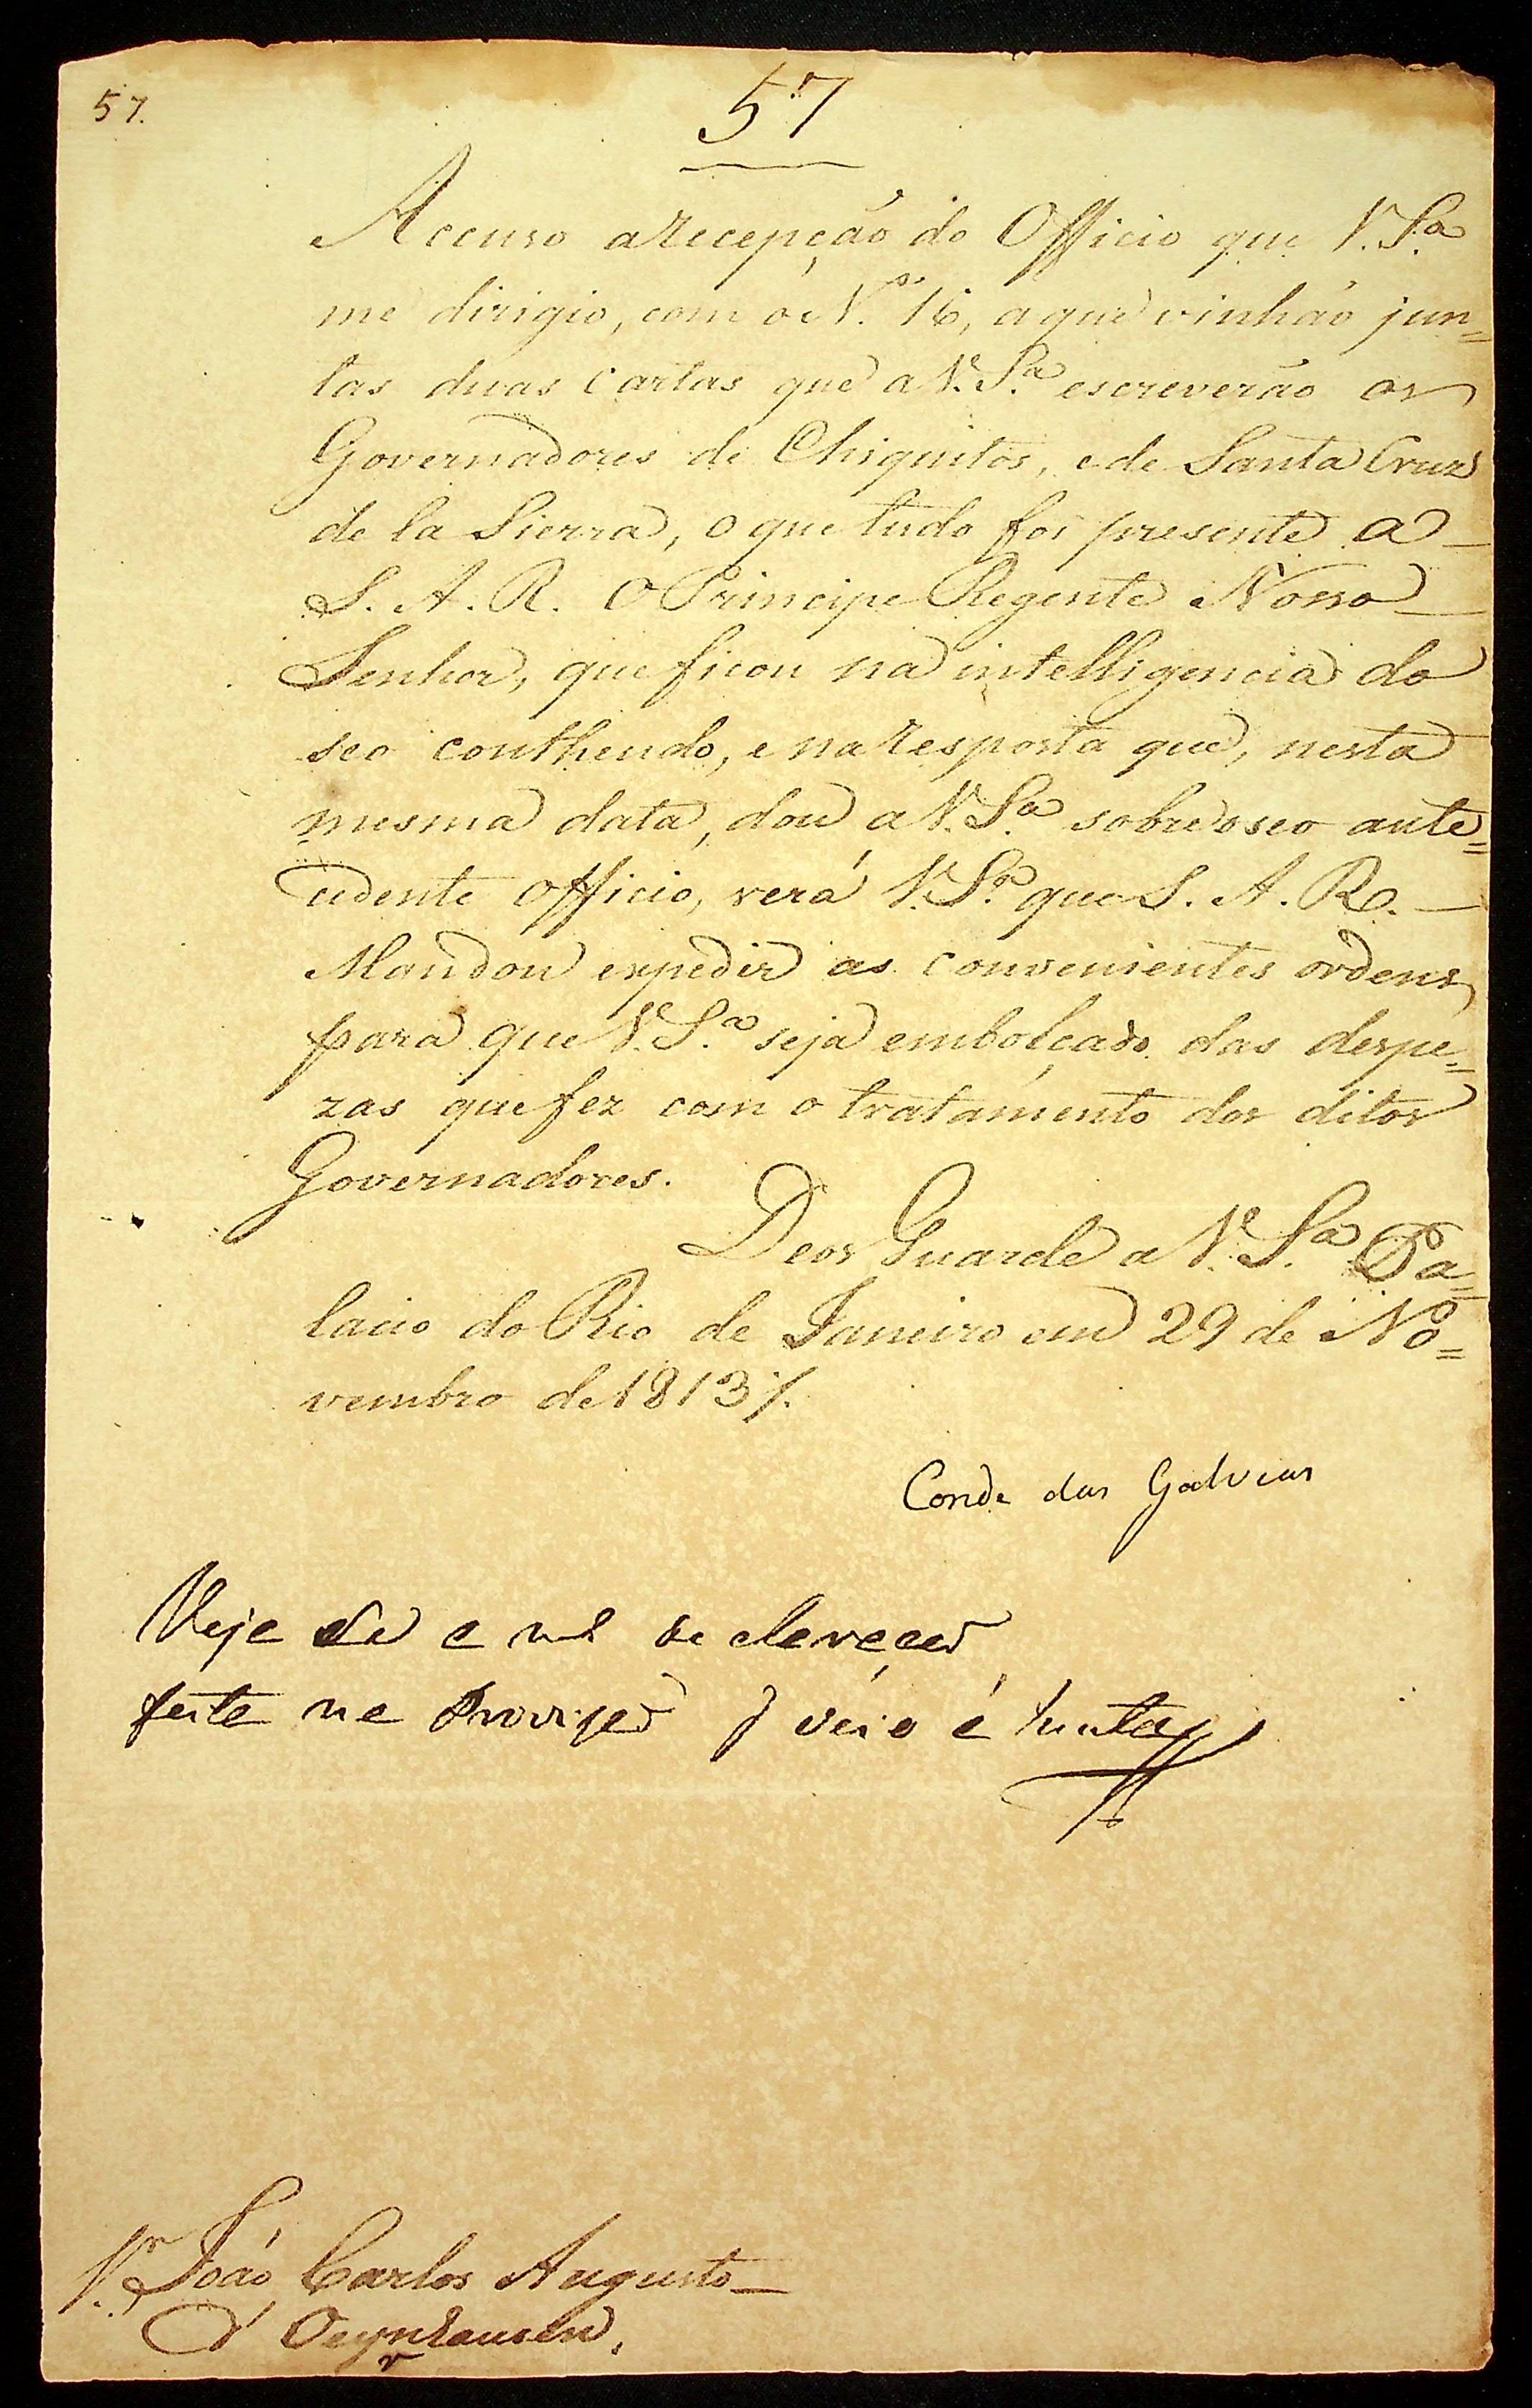 57.
57
Accuso a recepção do Officio que V. S.ª
me dirigio, com o N.º 16, a que vinhão jun=
tas duas cartas que a V. S.ª escreverão os
Governadores de Chiquitos, e de Santa Cruz
de la Sierra, o que tudo foi presente a
S. A. R. O Principe Regente Nosso
Senhor, que ficou na intelligencia do
seo contheudo, e na resposta que, nesta
mesma data, dou a V. S.ª sobre o seo ante=
cedente Officio, verá V. S.ª que S. A. R.
Mandou expedir as convenientes ordens
para que V. S.ª seja embolçado das despe=
zas que fez com o tratamento dos ditos
Governadores.
Deos Guarde a V. S.ª Pa=
lacio do Rio de Janeiro em 29 de No=
vembro de 1813 /.
Conde das Galveas
Veje
feite ne veio e
S.r João Carlos Augusto
d'Oeynhausen.